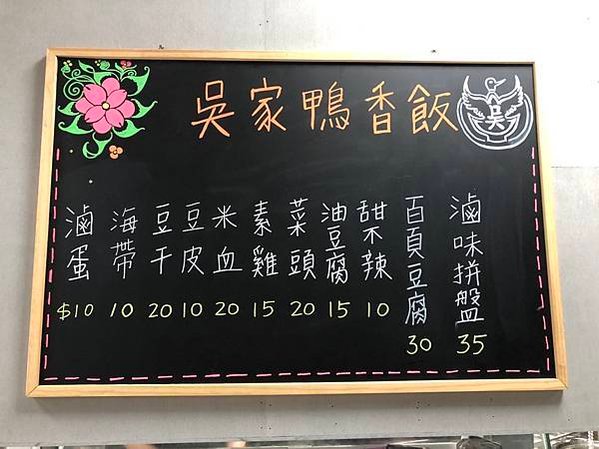 吳家鴨香飯
吳
滷蛋 $10
海帶 10
豆干 20
豆皮 10
米血 20
素雞 15
菜頭 20
油豆腐 15
甜不辣 10
百頁豆腐 30
滷味拼盤 35